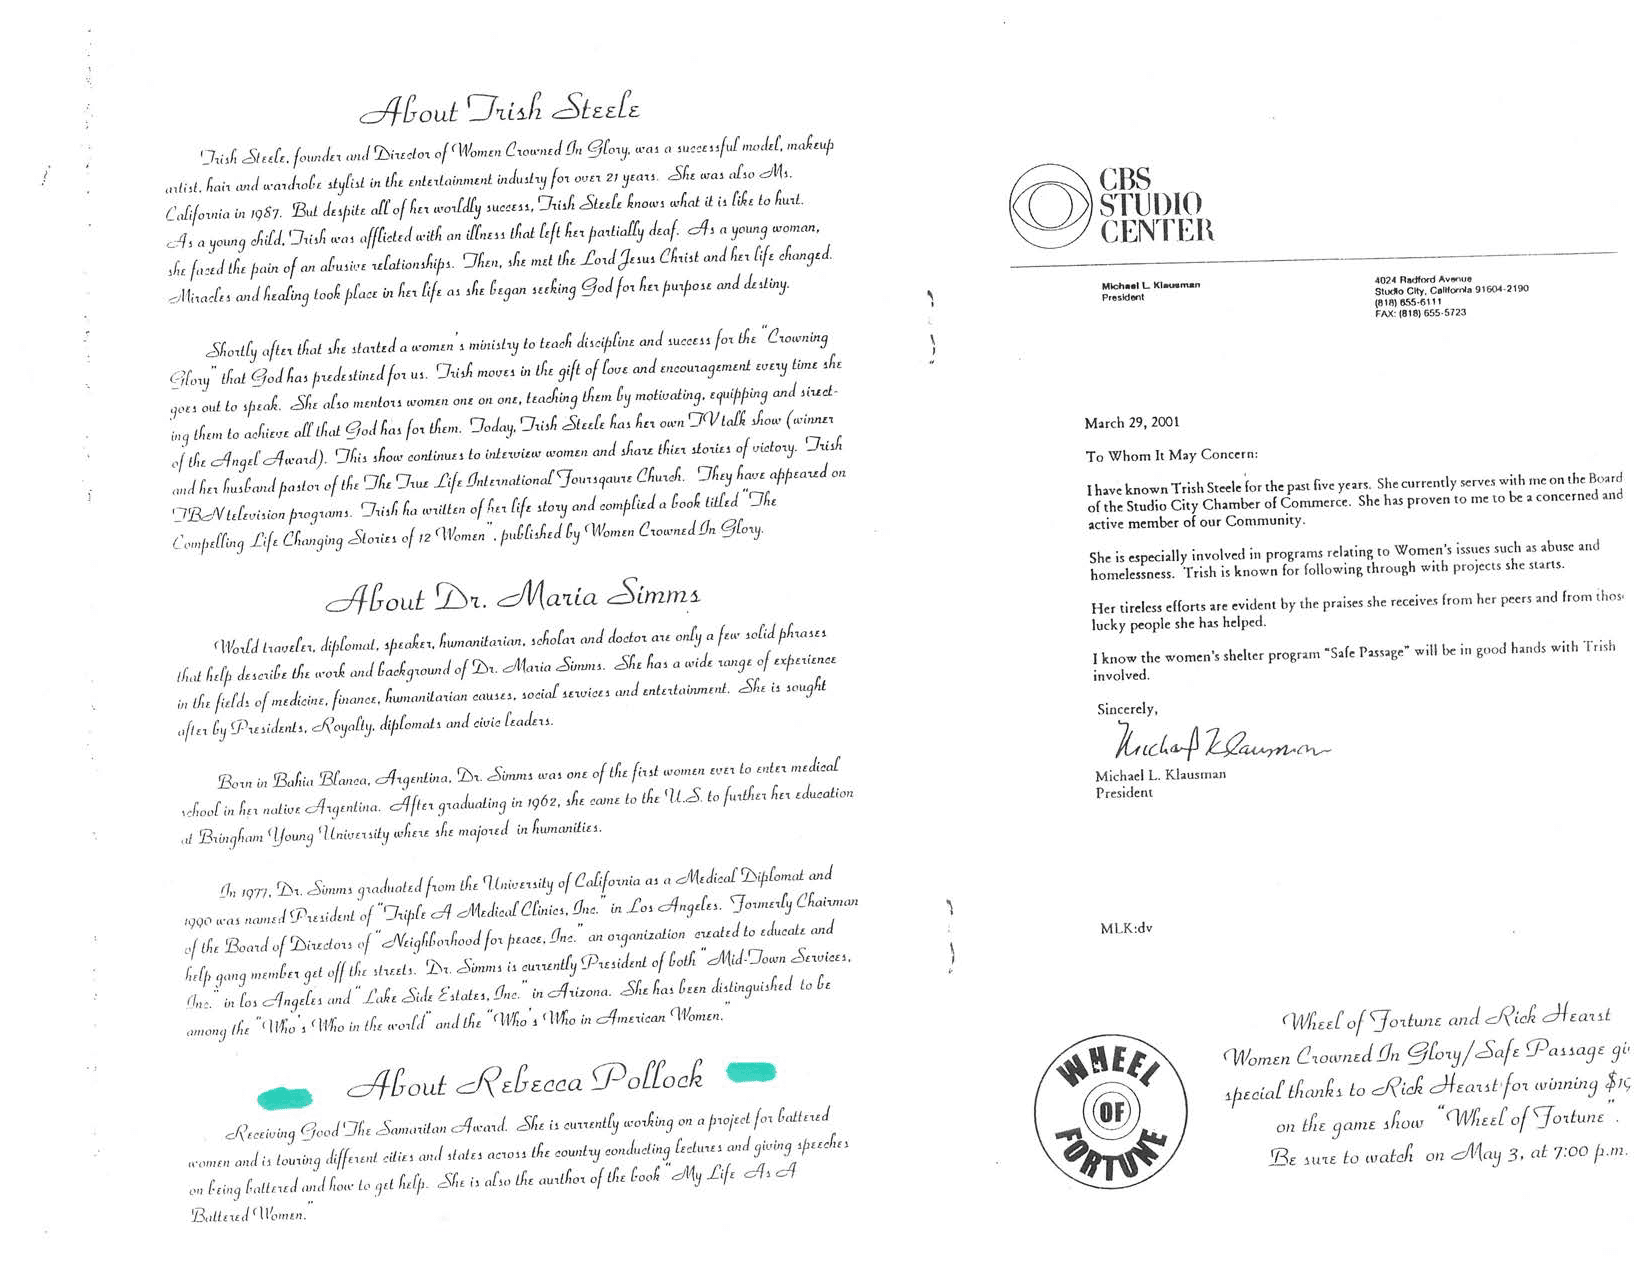 About Trish Steele
Trish Steele, founder and Director of Women Crowned In Glory, was a successful model, makeup
artist, hair and wardrobe stylist in the entertainment industry for over 21 years. She was also Ms.
California in 1987. But despite all of her worldly success, Trish Steele knows what it is like to hurt.
As a young child, Trish was afflicted with an illness that left her partially deaf. As a young woman,
she faced the pain of an abusive relationships. Then, she met the Lord Jesus Christ and her life changed.
Miracles and healing took place in her life as she began seeking God for her purpose and destiny.
Shortly after that she started a women's ministry to teach discipline and success for the "Crowning
Glory" that God has predestined for us. Trish moves in the gift of love and encouragement every time she
goes out to speak. She also mentors women one on one, teaching them by motivating, equipping and sirect-
ing them to achieve all that God has for them. Today, Trish Steele has her own TV talk show (winner
of the Angel Award). This show continues to interview women and share thier stories of victory. Trish
and her husband pastor of the The True Life International Foursqaure Church. They have appeared on
TBN television programs. Trish ha written of her life story and complied a book titled "The
Compelling Life Changing Stories of 12 Women", published by Women Crowned In Glory.
About Dr. Maria Simms
World traveler, diplomat, speaker, humanitarian, scholar and doctor are only a few solid phrases
that help describe the work and background of Dr. Maria Simms. She has a wide range of experience
in the fields of medicine, finance, humanitarian causes, social services and entertainment. She is sought
after by Presidents, Royalty, diplomats and civic leaders.
Born in Bahia Blanca, Argentina, Dr. Simms was one of the first women ever to enter medical
school in her native Argentina. After graduating in 1962, she came to the U.S. to further her education
at Bringham Young University where she majored in humanities.
In 1977, Dr. Simms graduated from the University of California as a Medical Diplomat and
1990 was named President of "Triple A Medical Clinics, Inc." in Los Angeles. Formerly Chairman
of the Board of Directors of "Neighborhood for peace, Inc." an organization created to educate and
help gang member get off the streets. Dr. Simms is currently President of both "Mid-Town Services,
Inc." in Los Angeles and "Lake Side Estates, Inc." in Arizona. She has been distinguished to be
among the "Who's Who in the world" and the "Who's Who in American Women."
About Rebecca Pollock
Receiving Good The Samaritan Award. She is currently working on a project for battered
women and is touring different cities and states across the country conducting lectures and giving speeches
on being battered and how to get help. She is also the aurthor of the book "My Life As A
Battered Women."
CBS
STUDIO
CENTER
Michael L. Klausman
President
4024 Radford Avenue
Studio City, California 91604-2190
(818) 655-6111
FAX: (818) 655-5723
March 29, 2001
To Whom It May Concern:
I have known Trish Steele for the past five years. She currently serves with me on the Board
of the Studio City Chamber of Commerce. She has proven to me to be a concerned and
active member of our Community.
She is especially involved in programs relating to Women's issues such as abuse and
homelessness. Trish is known for following through with projects she starts.
Her tireless efforts are evident by the praises she receives from her peers and from thos
lucky people she has helped.
I know the women's shelter program "Safe Passage" will be in good hands with Trish
involved.
Sincerely,
Michael Klausman
Michael L. Klausman
President
MLK:dv
WHEEL
OF
FORTUNE
Wheel of Fortune and Rick Hearst
Women Crowned In Glory/Safe Passage gi
special thanks to Rick Hearst for winning $19
on the game show "Wheel of Fortune".
Be sure to watch on May 3, at 7:00 p.m.